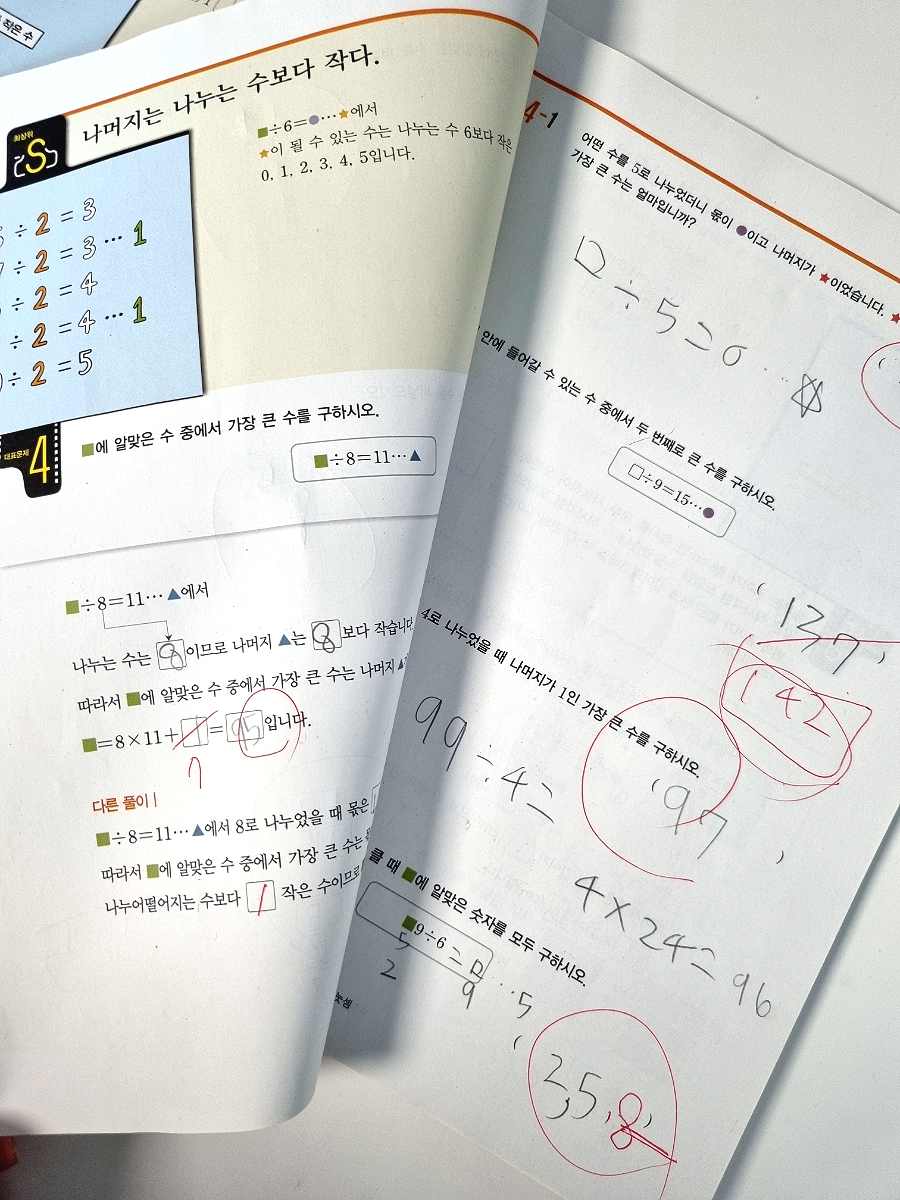 작은 수
최상위
S
나머지는 나누는 수보다 작다.
■÷6=●⋯★에서
★이 될 수 있는 수는 나누는 수 6보다 작은
0, 1, 2, 3, 4, 5입니다.
÷ 2 = 3
÷ 2 = 3 ⋯ 1
÷ 2 = 4
÷ 2 = 4 ⋯ 1
÷ 2 = 5
대표문제
4
■에 알맞은 수 중에서 가장 큰 수를 구하시오.
■÷8=11⋯▲
■÷8=11⋯▲에서
나누는 수는 8 이므로 나머지 ▲는 8 보다 작습니다
따라서 ■에 알맞은 수 중에서 가장 큰 수는 나머지 ▲
■=8×11+ = 95 입니다.
7
다른 풀이 |
■÷8=11⋯▲에서 8로 나누었을 때 몫은
따라서 ■에 알맞은 수 중에서 가장 큰 수는
나누어떨어지는 수보다 1 작은 수이므로
4-1
어떤 수를 5로 나누었더니 몫이 ●이고 나머지가 ★이었습니다. ★
가장 큰 수는 얼마입니까?
□ ÷ 5 = 0 ⋯ ☆
안에 들어갈 수 있는 수 중에서 두 번째로 큰 수를 구하시오.
□÷9=15⋯●
( 137 )
142
4로 나누었을 때 나머지가 1인 가장 큰 수를 구하시오.
99 ÷ 4 =
( 97 )
4 × 24 = 96
클 때 ■에 알맞은 숫자를 모두 구하시오.
■9÷6 = □ ⋯ 5
5
2
9
나눗셈
( 2, 5, 8 )